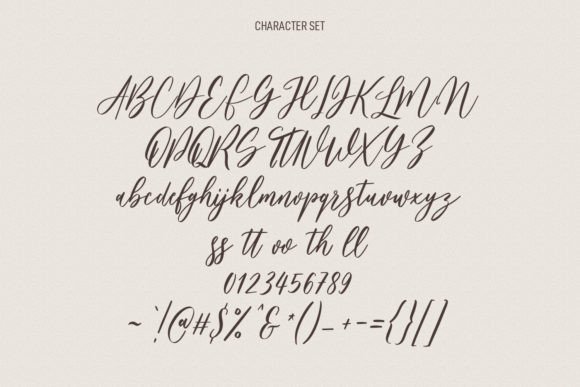 CHARACTER SET
ABCDEFGHIJKLMN
OPQRSTUVWXYZ
abcdefghijklmnopqrstuvwxyz
ss tt oo th ll
0123456789
~ `!@#$%^&*()_+-={}[]